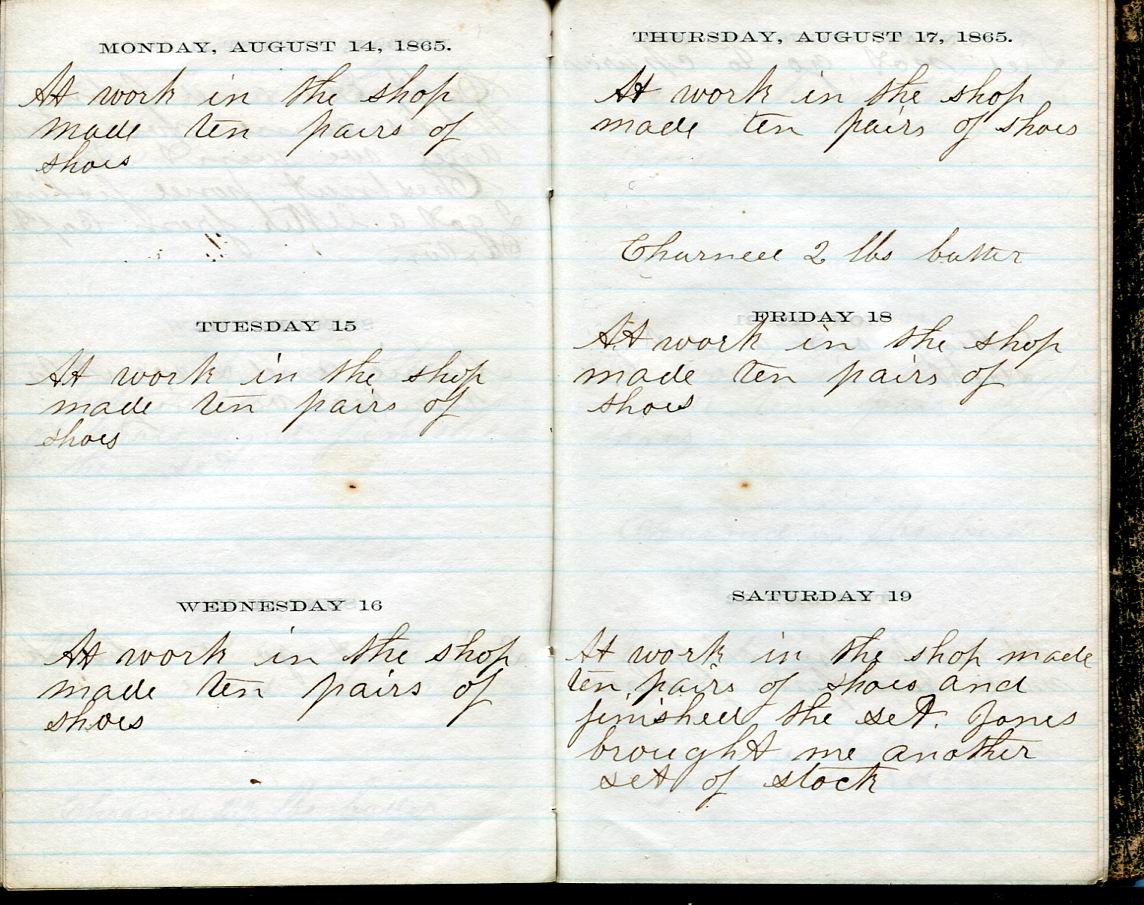 MONDAY, AUGUST 14, 1865.
At work in the shop
made ten pairs of
shoes
TUESDAY 15
At work in the shop
made ten pairs of
shoes
WEDNESDAY 16
At work in the shop
made ten pairs of
shoes
THURSDAY, AUGUST 17, 1865.
At work in the shop
made ten pairs of shoes
Churned 2 lbs butter
FRIDAY 18
At work in the shop
made ten pairs of
shoes
SATURDAY 19
At work in the shop made
ten pairs of shoes and
finished the set. Jones
brought me another
set of stock